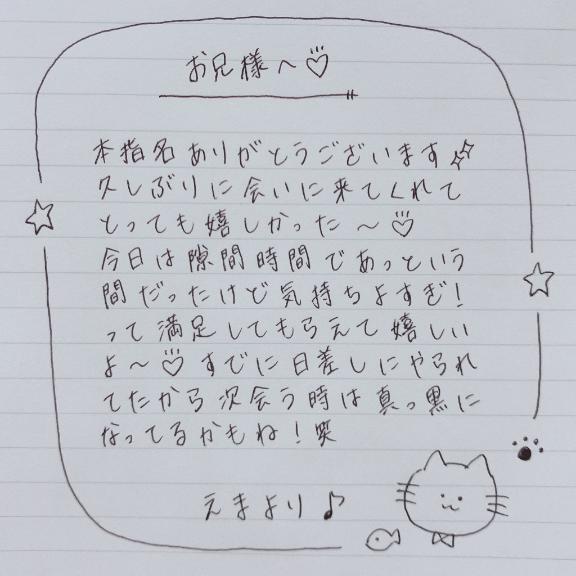 お兄様へ♡
本指名ありがとうございます
久しぶりに会いに来てくれて
とっても嬉しかった〜♡
今日は隙間時間であっという
間だったけど気持ちよすぎ!
って満足してもらえて嬉しい
よ〜♡すでに日差しにやられ
てたから次会う時は真っ黒に
なってるかもね!笑
えまより♪